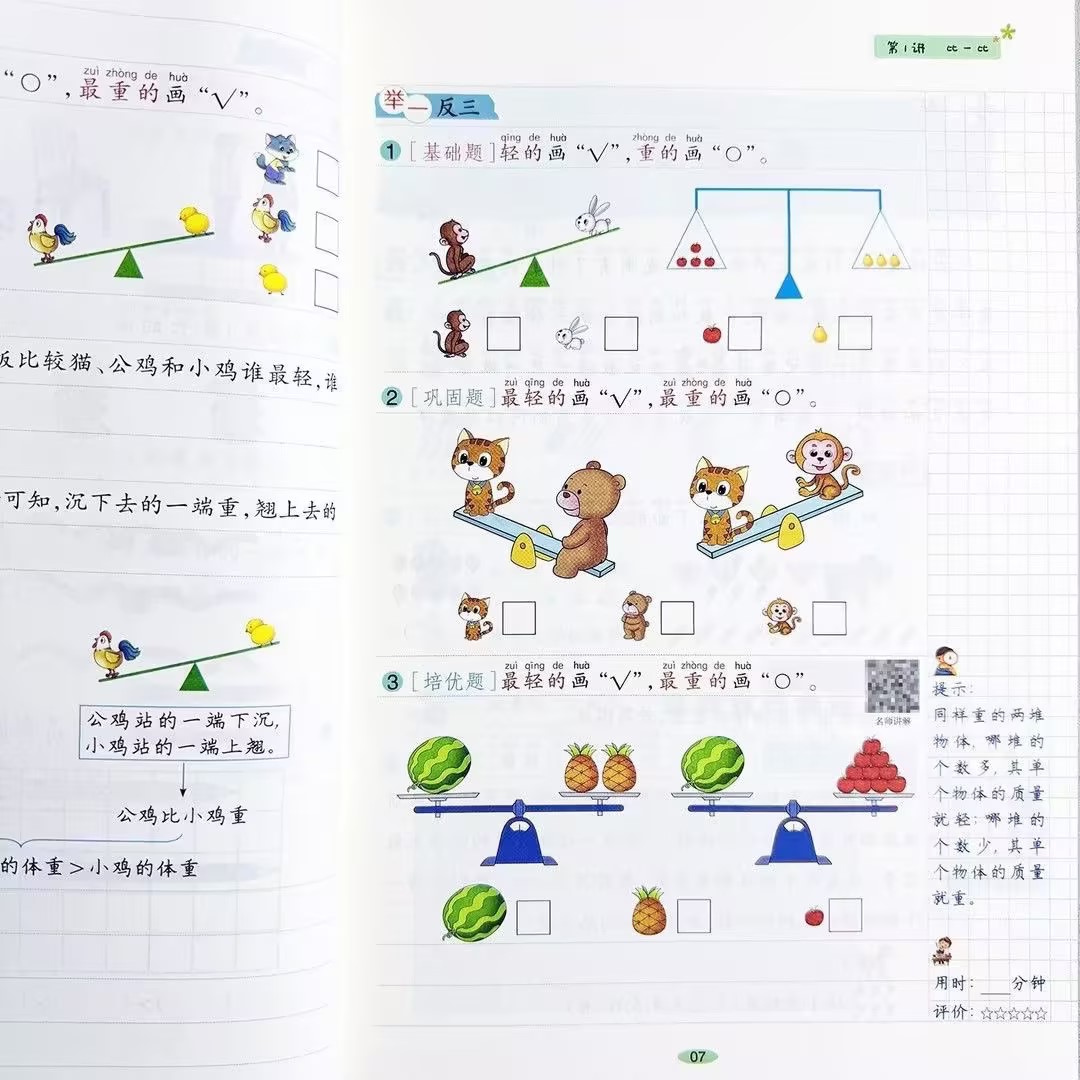 zuì zhòng de huà
“○”,最重的画“√”。
板比较猫、公鸡和小鸡谁最轻,谁
可知,沉下去的一端重,翘上去的
公鸡站的一端下沉,
小鸡站的一端上翘。
公鸡比小鸡重
的体重>小鸡的体重
第1讲 比一比
举一反三
qīng de huà zhòng de huà
1 [基础题]轻的画“√”,重的画“○”。
zuì qīng de huà zuì zhòng de huà
2 [巩固题]最轻的画“√”,最重的画“○”。
zuì qīng de huà zuì zhòng de huà
3 [培优题]最轻的画“√”,最重的画“○”。
名师讲解
提示:
同样重的两堆
物体,哪堆的
个数多,其单
个物体的质量
就轻;哪堆的
个数少,其单
个物体的质量
就重。
用时:___分钟
评价:☆☆☆☆☆
07